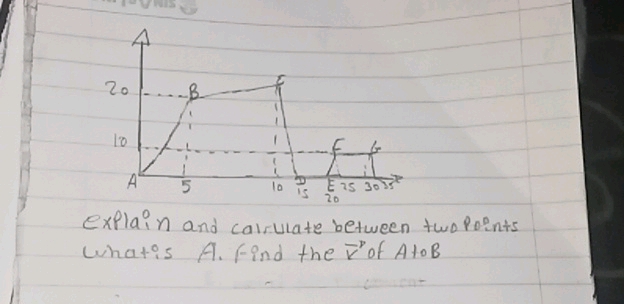 20 B C
10 F G
A 5 10 D E 25 30 35
15 20
explain and calculate between two Points
whatis A. find the v of AtoB